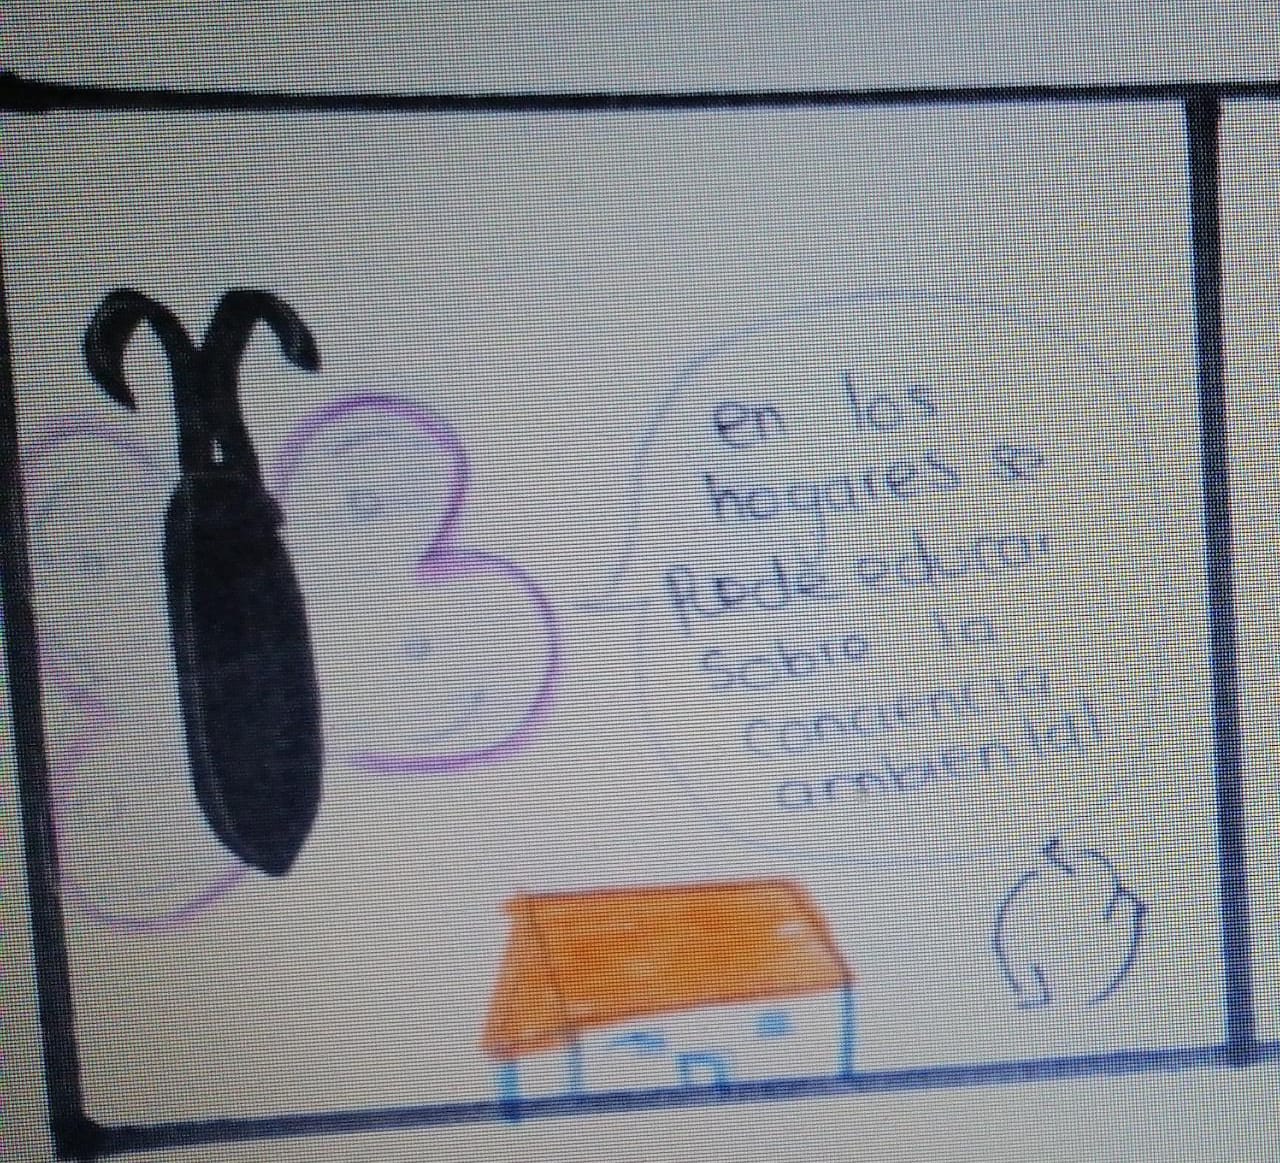 en los
hogares se
Puede educar
Sobre la
conciencia
ambiental